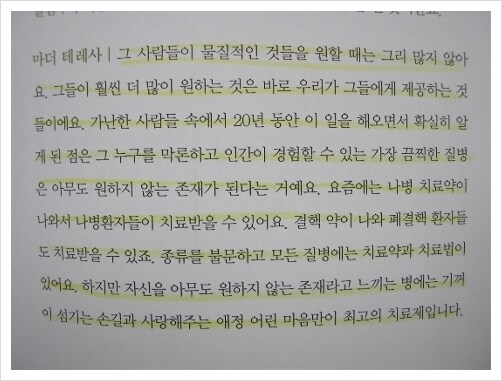 마더 테레사 | 그 사람들이 물질적인 것들을 원할 때는 그리 많지 않아
요. 그들이 훨씬 더 많이 원하는 것은 바로 우리가 그들에게 제공하는 것
들이에요. 가난한 사람들 속에서 20년 동안 이 일을 해오면서 확실히 알
게 된 점은 그 누구를 막론하고 인간이 경험할 수 있는 가장 끔찍한 질병
은 아무도 원하지 않는 존재가 된다는 거예요. 요즘에는 나병 치료약이
나와서 나병환자들이 치료받을 수 있어요. 결핵 약이 나와 폐결핵 환자들
도 치료받을 수 있죠. 종류를 불문하고 모든 질병에는 치료약과 치료법이
있어요. 하지만 자신을 아무도 원하지 않는 존재라고 느끼는 병에는 기꺼
이 섬기는 손길과 사랑해주는 애정 어린 마음만이 최고의 치료제입니다.